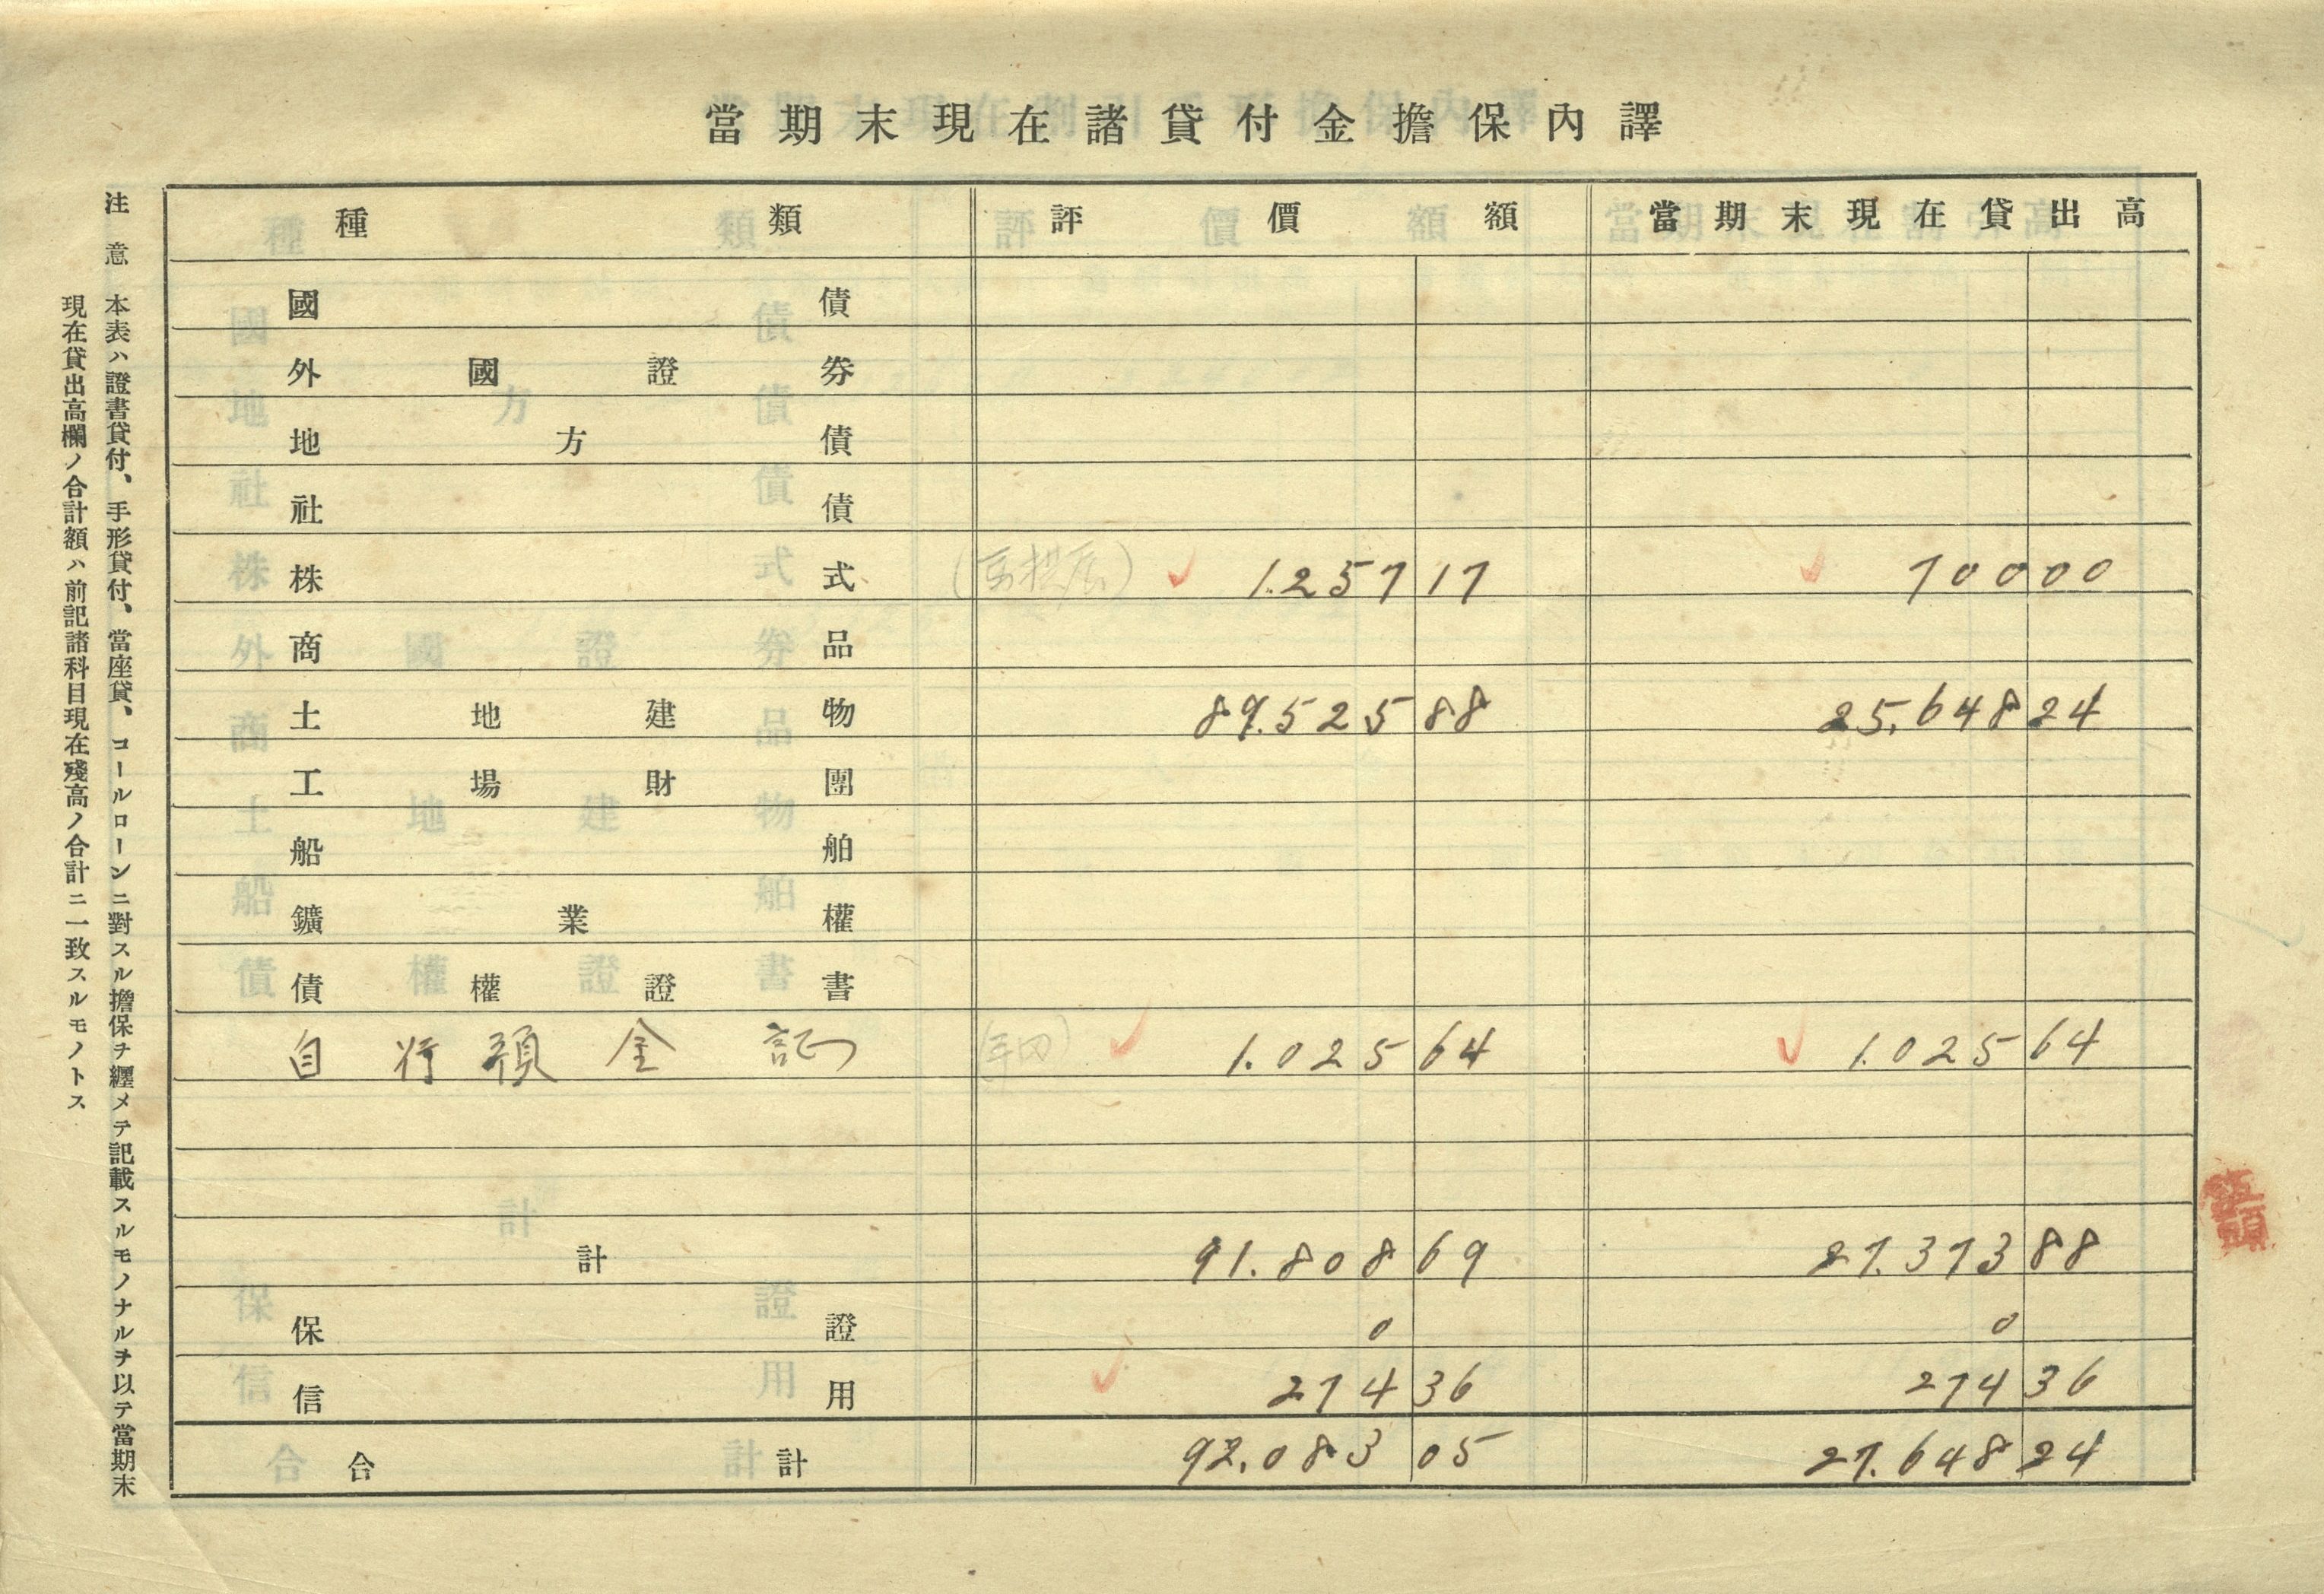 當期末現在諸貸付金擔保內譯
種類 評價額 當期末現在貸出高
國債
外國證券
地方債
社債
株式 1.257 17 700 00
商品
土地建物 89.525 88 25.648 24
工場財團
船舶
鑛業權
債權證書
自行預金証 1.025 64 1.025 64
計 91.808 69 27.373 88
保證 0 0
信用 274 36 274 36
合計 92.083 05 27.648 24
注意 本表ハ證書貸付、手形貸付、當座貸、コールローンニ對スル擔保ヲ纒メテ記載スルモノナルヲ以テ當期末
現在貸出高欄ノ合計額ハ前記諸科目現在殘高ノ合計ニ一致スルモノトス